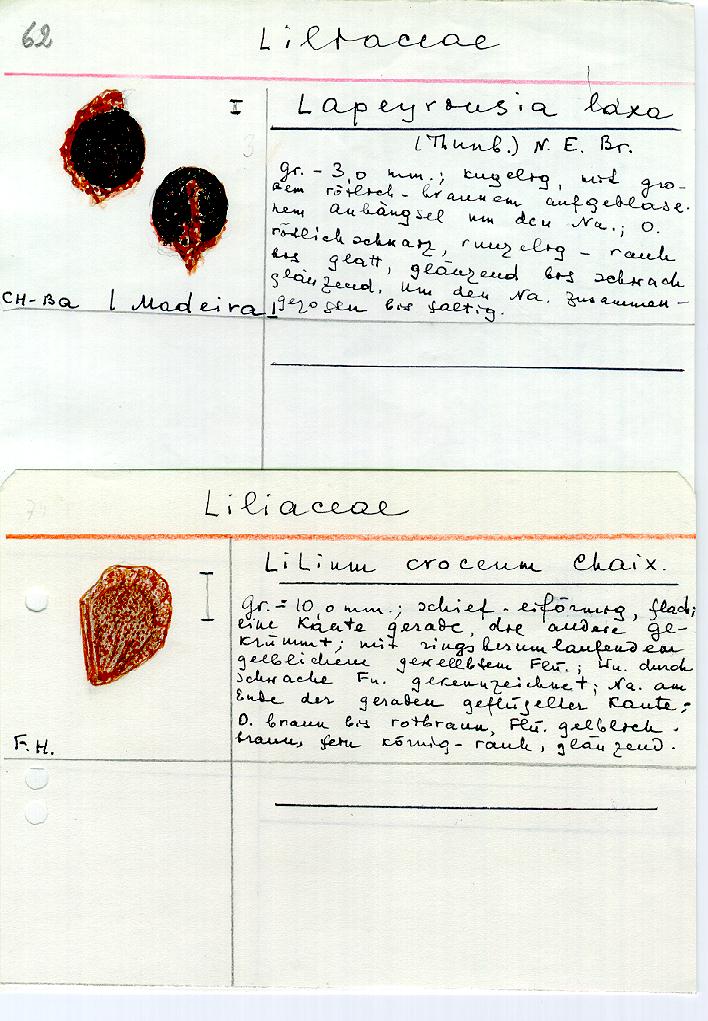 62
Liliaceae
Lapeyrousia laxa
(Thunb.) N. E. Br.
3
gr. - 3,0 mm.; kugelig, mit gro-
ßem rötlich-braunem aufgeblase-
nem Anhängsel um den Na.; O.
rötlich schwarz, runzelig - rauh
bis glatt, glänzend bis schwach
glänzend, um den Na. zusammen-
gezogen bis faltig.
CH-Ba / Madeira
Liliaceae
Lilium croceum Chaix.
Gr. = 10,0 mm.; schief-eiförmig, flach;
eine Kante gerade, die andere ge-
krümmt; mit ringsherumlaufendem
gelblichem gewelltem Flü.; Wu. durch
schwache Fu. gekennzeichnet; Na. am
Ende der geraden geflügelter Kante;
O. braun bis rotbraun, Flü. gelblich-
braun, fein körnig-rauh, glänzend.
F.H.